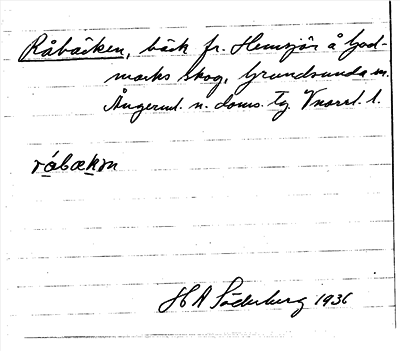 Råbäcken, bäck fr. Hemsjön å God-
marks skog, Grundsunda sn.
Ångerml. n. doms. tg. Vnorrl. l.
råbækɒn
H A Söderberg 1936